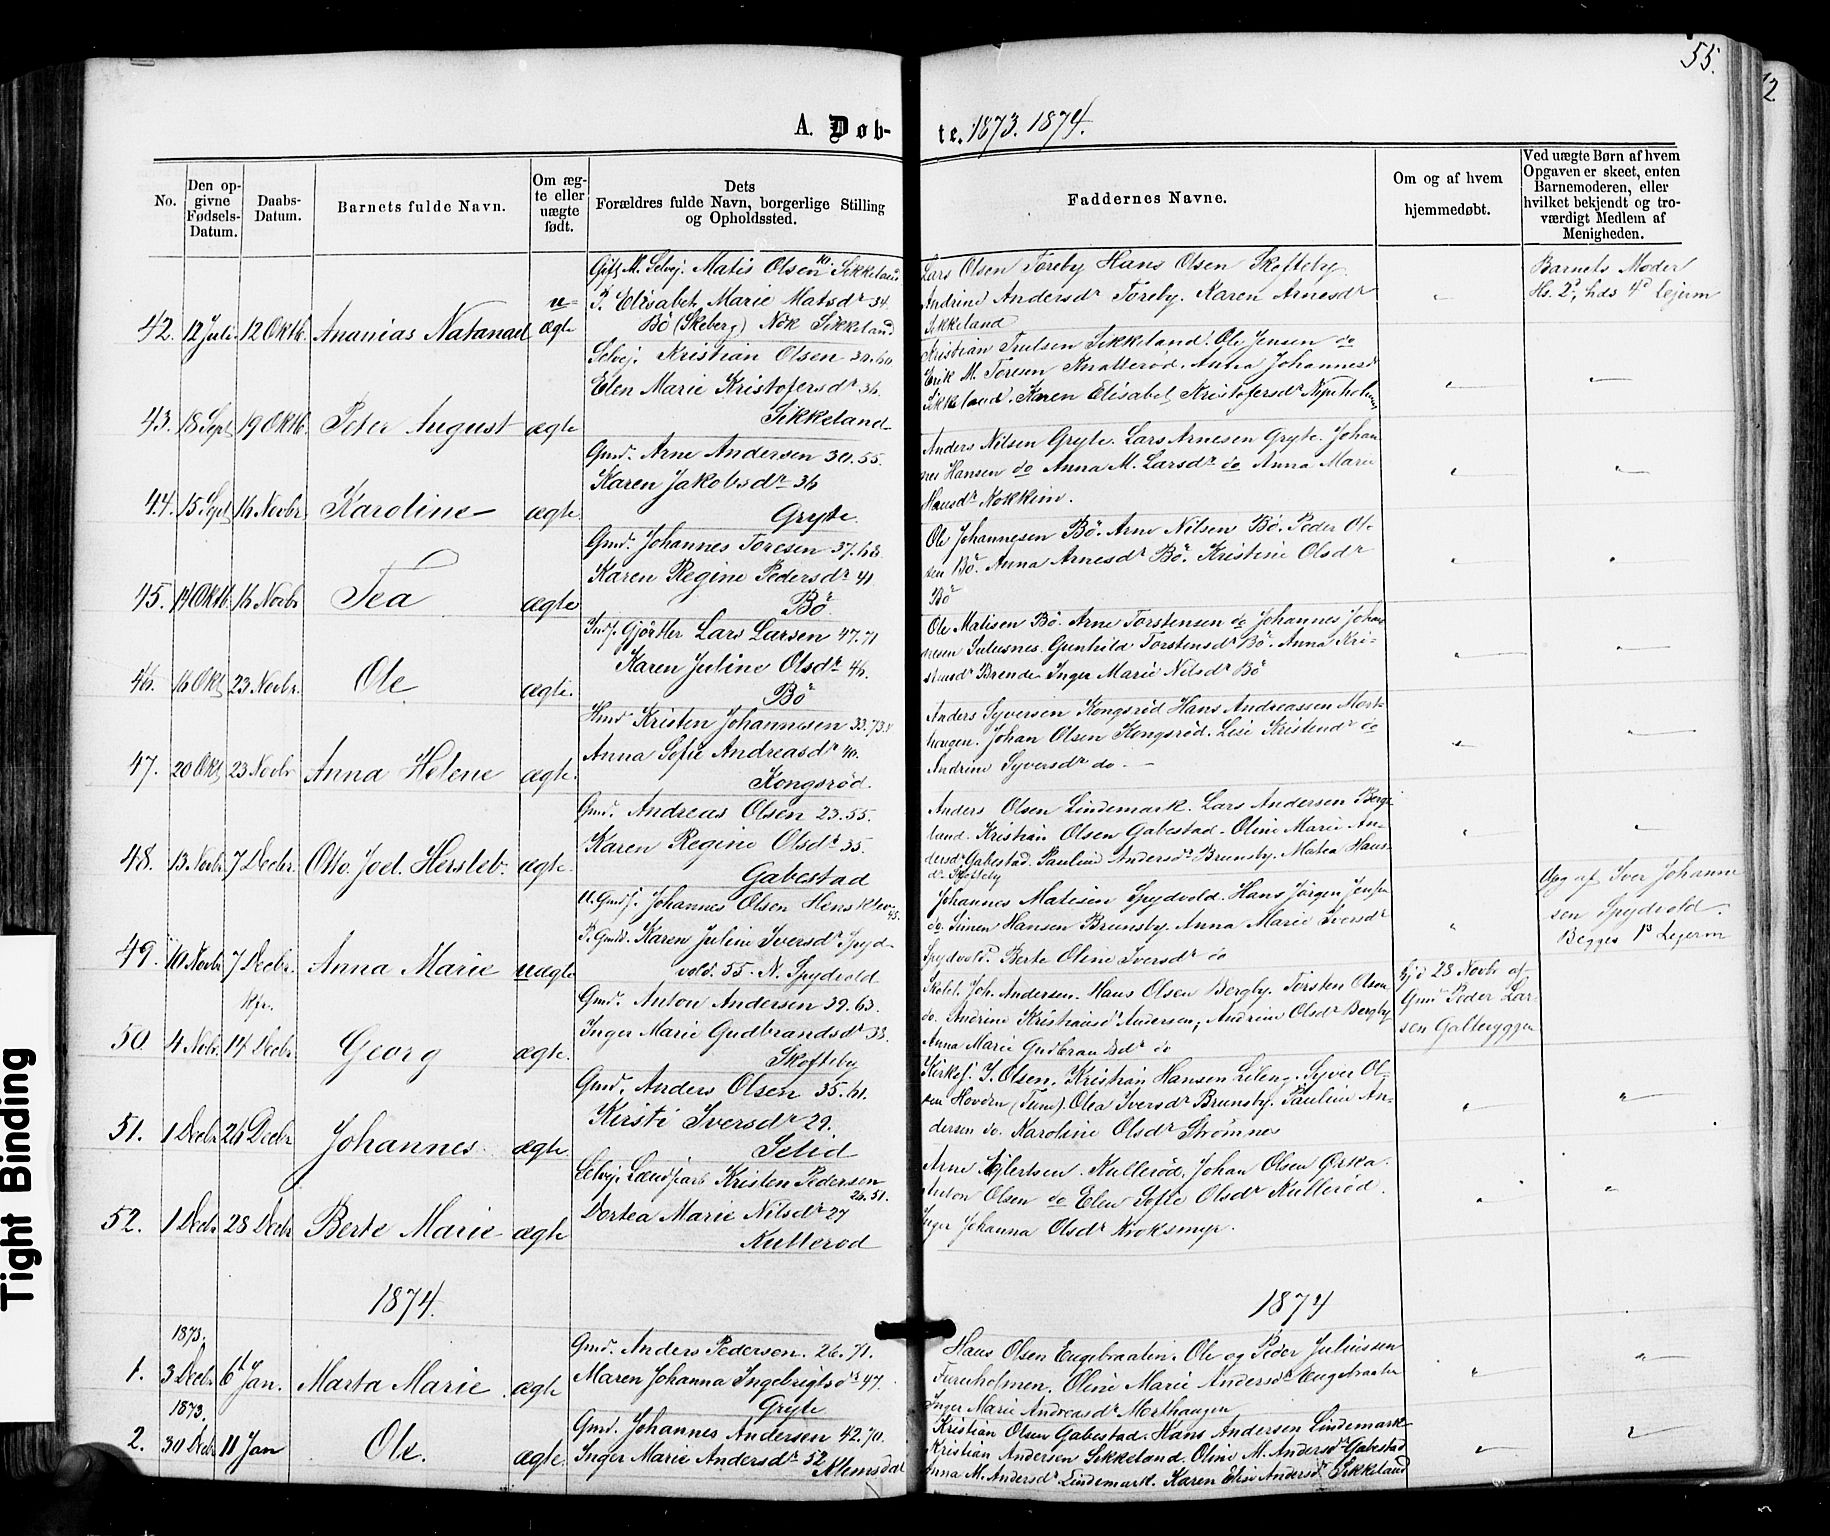 55.
2
A. Døb-
te. 1873. 1874.
No.
Den op-
givne
Fødsels-
Datum.
Daabs-
Datum.
Barnets fulde Navn.
Om æg-
te eller
uægte
født.
Dets
Forældres fulde Navn, borgerlige Stilling
og Opholdssted.
Faddernes Navne.
Om og af hvem
hjemmedøbt.
Ved uægte Børn af hvem
Opgaven er skeet, enten
Barnemoderen, eller
hvilket bekjendt og tro-
værdigt Medlem af
Menigheden.
Gift M. Selvej. Matis Olsen Sikkeland
P. Elisabet Marie Matsdr 34
Bö (Skeberg) Nok Sikkeland
42. 12 Juli 12 Oktb. Ananias Natanael u-
ægte
Lars Olsen Toreby Hans Olsen Skofteby
Andrine Andersdr Toreby. Karen Arnesdr
Sikkeland
Barnets Moder
Hs. 2d, hds 4d Lejerm
Selvej. Kristian Olsen 30.60
Elen Marie Kristofersdr 36
Sikkeland
43. 18 Sept 19 Oktb. Peter August ægte
Kristian Trulsen Sikkeland. Ole Jensen do
Erik M. Toresen Knatterød. Anna Johannesd
Sikkeland. Karen Elisabet Kristofersdr
Gmd. Arne Andersen 30.55.
Karen Jakobsdr 36
Gryte.
44. 15 Sept 16 Novbr. Karoline ægte
Anders Nilsen Gryte. Lars Arnesen Gryte. Johan-
nes Hansen do Anna M. Larsdr do Anna Marie
Hansdr Kokkim.
Gmd. Johannes Toresen 37.68
Karen Regine Pedersdr 41
Bö
45. 14 Oktb. 16 Novbr Tea ægte
Ole Johannesen Bö. Arne Nilsen Bö. Peder Ol-
sen Bö. Anna Arnesdr Bö. Kristine Olsdr
Bö
Inds. Gjørtler Lars Larsen 47.71
Karen Juline Olsdr 46.
Bö
46. 16 Okt 23 Novbr. Ole ægte.
Ole Matisen Bö. Arne Torstensen do Johannes Johan
nesen Gunhild Torstensdr Bö. Anna Kri-
stensdr Brende Inger Marie Nilsdr Bö
Hmd Kristen Johannesen 33.73
Anna Sofie Andreasdr 40.
Kongsrød.
47. 20 Okt 23 Novbr Anna Helene ægte.
Anders Syversen Kongsrød Hans Andreassen Mort-
haugen. Johan Olsen Kongsrød. Lise Kristendr do
Andrine Syversdr do. —
Gmd. Andreas Olsen 23.55.
Karen Regine Olsdr 35.
Gabestad
48. 13 Novbr 7 Decbr. Otto Joel Hersleb ægte.
Anders Olsen Lindemark. Lars Andersen Berge
land. Kristian Olsen Gabestad. Oline Marie An-
dersdr Gabestad. Pauline Andersdr Brunsby. Matea Hans-
dr Skofteby
U. Gmds. Johannes Olsen Hensklev
45.
P. Gmds. Karen Juline Iversdr Spyd-
vold. 55. N. Spydvold
49. 10 Novbr 7 Decbr. Anna Marie uægte
Johannes Matisen Spydvold. Hans Jørgen Jensen
do. Simen Hansen Brunsby. Anna Marie Iversdr
Spydvold. Berte Oline Iversdr do
Opg af Iver Johanne
sen Spydvold.
Begges 1s Lejerm
Gmd. Anton Andersen 39.63.
Inger Marie Gudbrandsdr 33.
Skofteby
50. 4 Novbr. 14 Decbr Georg ægte.
Skolel. Joh. Andersen. Hans Olsen Bergby. Torsten Olsen
do. Andrine Kristiansd Andersen, Andrine Olsdr Bergby
Anna Marie Gudbrandsdr do
Hj. d 23 Novbr af
Gmd Peder Lar-
sen Galteryggen
Gmd. Anders Olsen 35.61.
Kirsti Iversdr 29.
Selid
51. 1 Decbr 26 Decbr Johannes ægte.
Kirkes. I. Olsen. Kristian Hansen Lileng. Syver Ol-
sen Hoven (Tune). Olea Iversdr Brunsby. Pauline An-
dersen do. Karoline Olsdr Strömnes
Selvej. Landpart Kristen Pedersen
26.51.
Dortea Marie Nilsdr 27
Kullerød
52. 1 Decbr 28 Decbr Berte Marie ægte
Arne Ejlertsen Kullerød. Johan Olsen Ørka.
Anton Olsen do Elen Sofie Olsdr Kullerød.
Inger Johanna Olsdr Kroksmyr.
1874.
1874
1873.
Gmd. Anders Pedersen. 26.71.
1. 3 Decbr 6t Jan. Marta Marie ægte
Maren Johanna Ingebrigtsdr 47.
Gryte
Hans Olsen Engebraaten. Ole og Peder Juliussen
Furuholmen. Oline Marie Andersdr Engebraaten
Inger Marie Andreasdr Morthaugen
1873.
Gmd. Johannes Andersen 42.70.
2. 30 Decbr 11 Jan Ole. ægte.
Inger Marie Andersdr 52
Klemsdal
Kristian Olsen Gabestad. Hans Andersen Lindemark
Kristian Andersen Sikkeland. Oline M. Andersdr Gabestad
Anna M. Andersdr Lindemark. Karen Elise Andersdr Sikkeland
Tight Binding